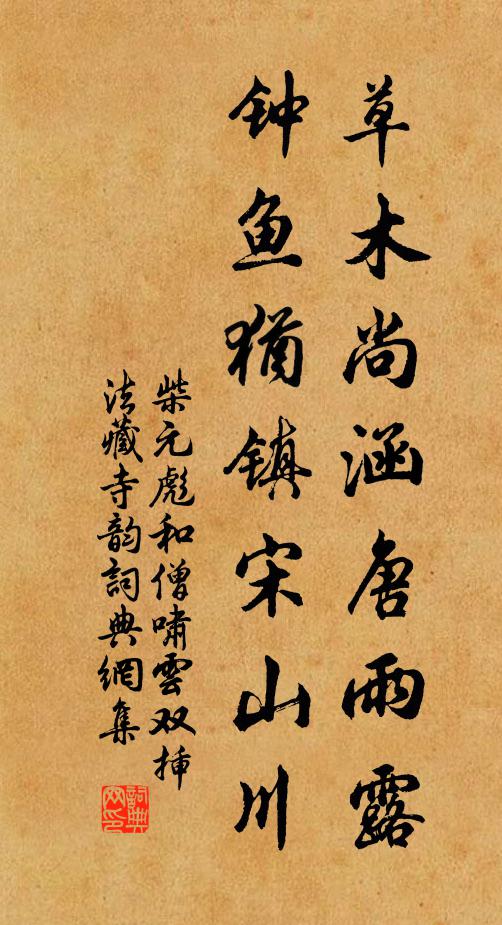 草木尚涵唐雨露
钟鱼犹镇宋山川
柴元彪和僧啸雲双插
法藏寺韵詞典網集
詞典网印